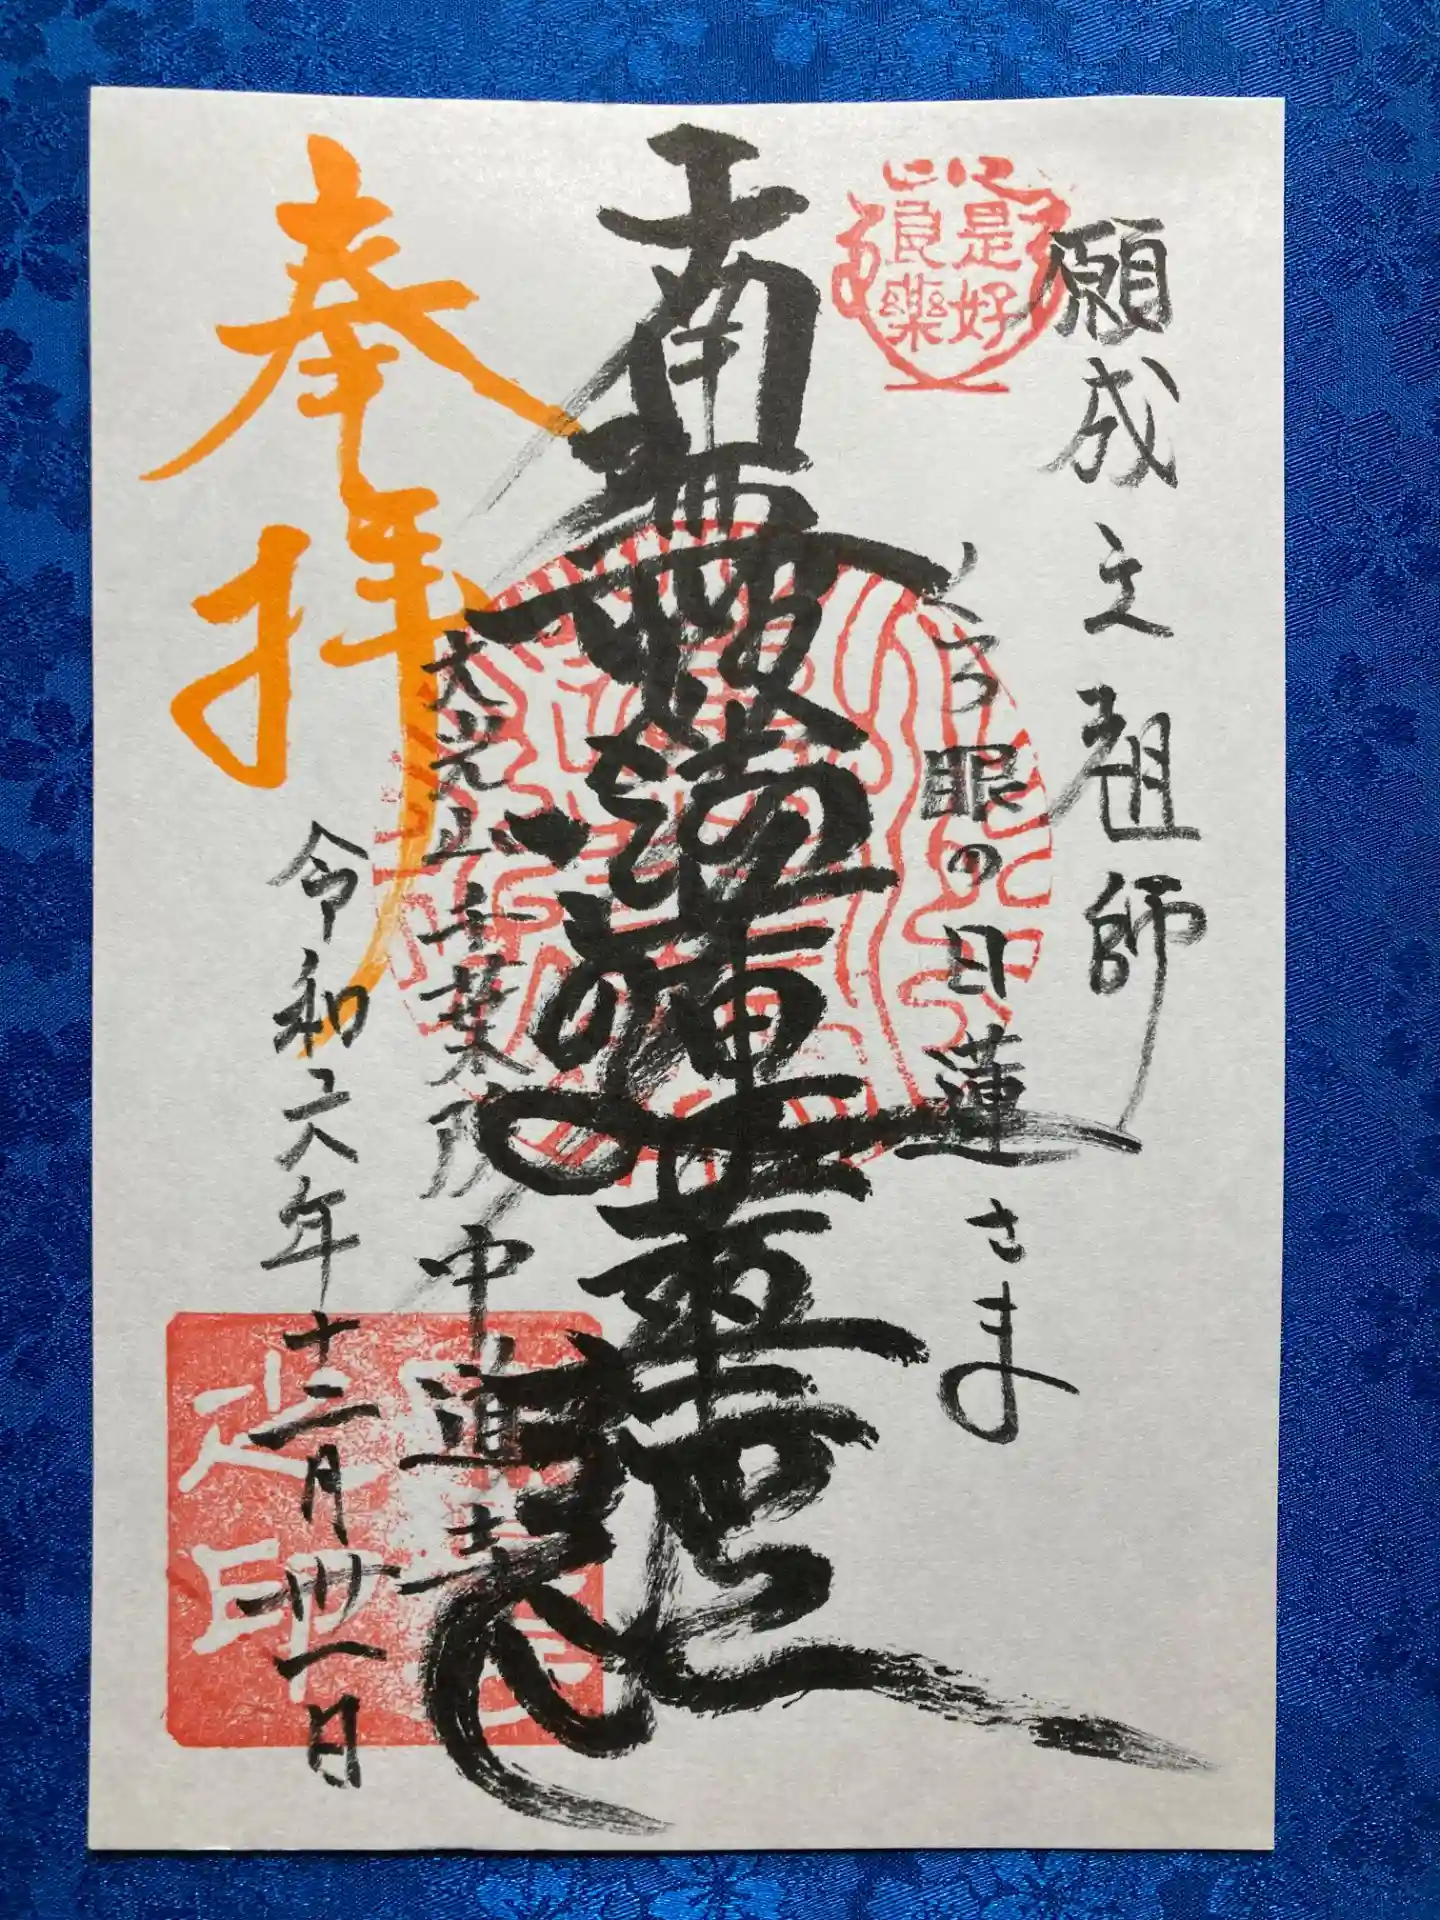 願成之祖師
くろ眼の日蓮さま
是好
良藥
南無妙法蓮華経
大光山千葉院中道寺
奉拝
令和六年十二月卅一日